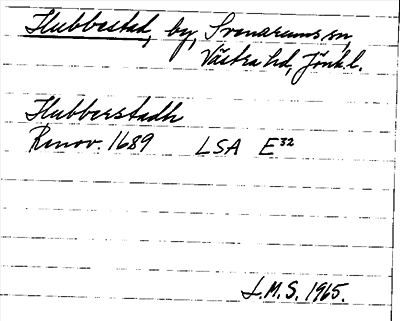 Flubbestad, by, Svenarums sn,
Västra hd, Jönk l.
Flubberstadh
Renov. 1689 LSA E32
L.M.S. 1965.